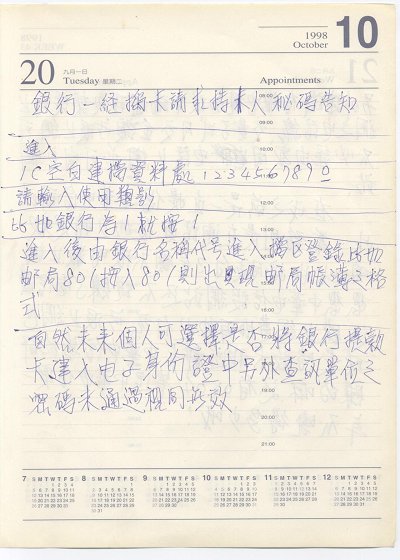 1998
October 10
20 九月一日
Tuesday 星期二 Appointments
銀行一經插卡請求持本人秘碼告知
08:00
09:00
10:00
進入
IC空白建檔資料處 1234567890
請輸入使用類別
12:00
比如銀行為1就按1
13:00
進入後由銀行名稱代号進入檔区登錄比如
郵局801按入801則出現郵局帳簿之格
式
自然未來個人可選擇是否將銀行提款
卡建入电子身份證中另外查訊單位之
密碼未通過視同無效
20:00
21:00
7 S M T W T F S 8 S M T W T F S 9 S M T W T F S 10 S M T W T F S 11 S M T W T F S 12 S M T W T F S